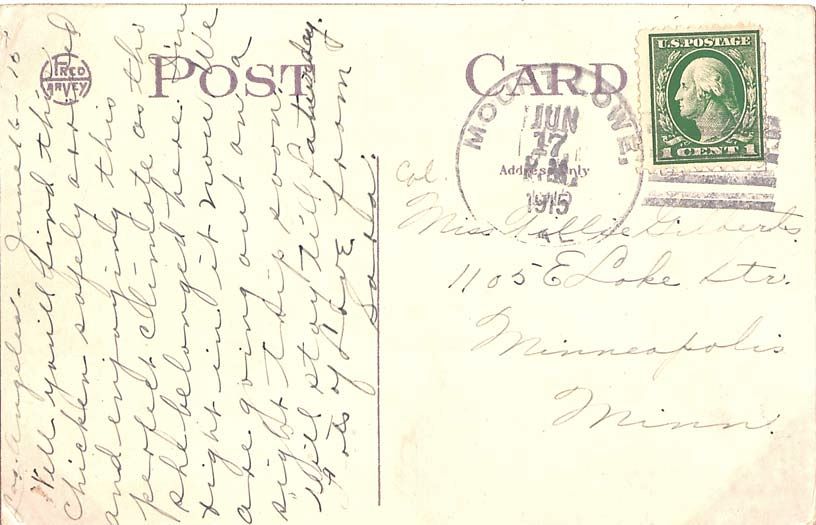 Los Angeles. June 16-15
Well you'll find the
chicken safely arrived
and enjoying this
perfect climate as tho
she belonged here. Am
right in it now. We
are going out on a
sight trip soon
Will stay till Saturday.
Lots of love from
FRED
HARVEY
POST CARD
MOUNT LOWE,
JUN
17
1915
U.S. POSTAGE
1 CENT 1
Address Only
Col.
Miss Gilberts
1105 E Lake Str.
Minneapolis
Minn.